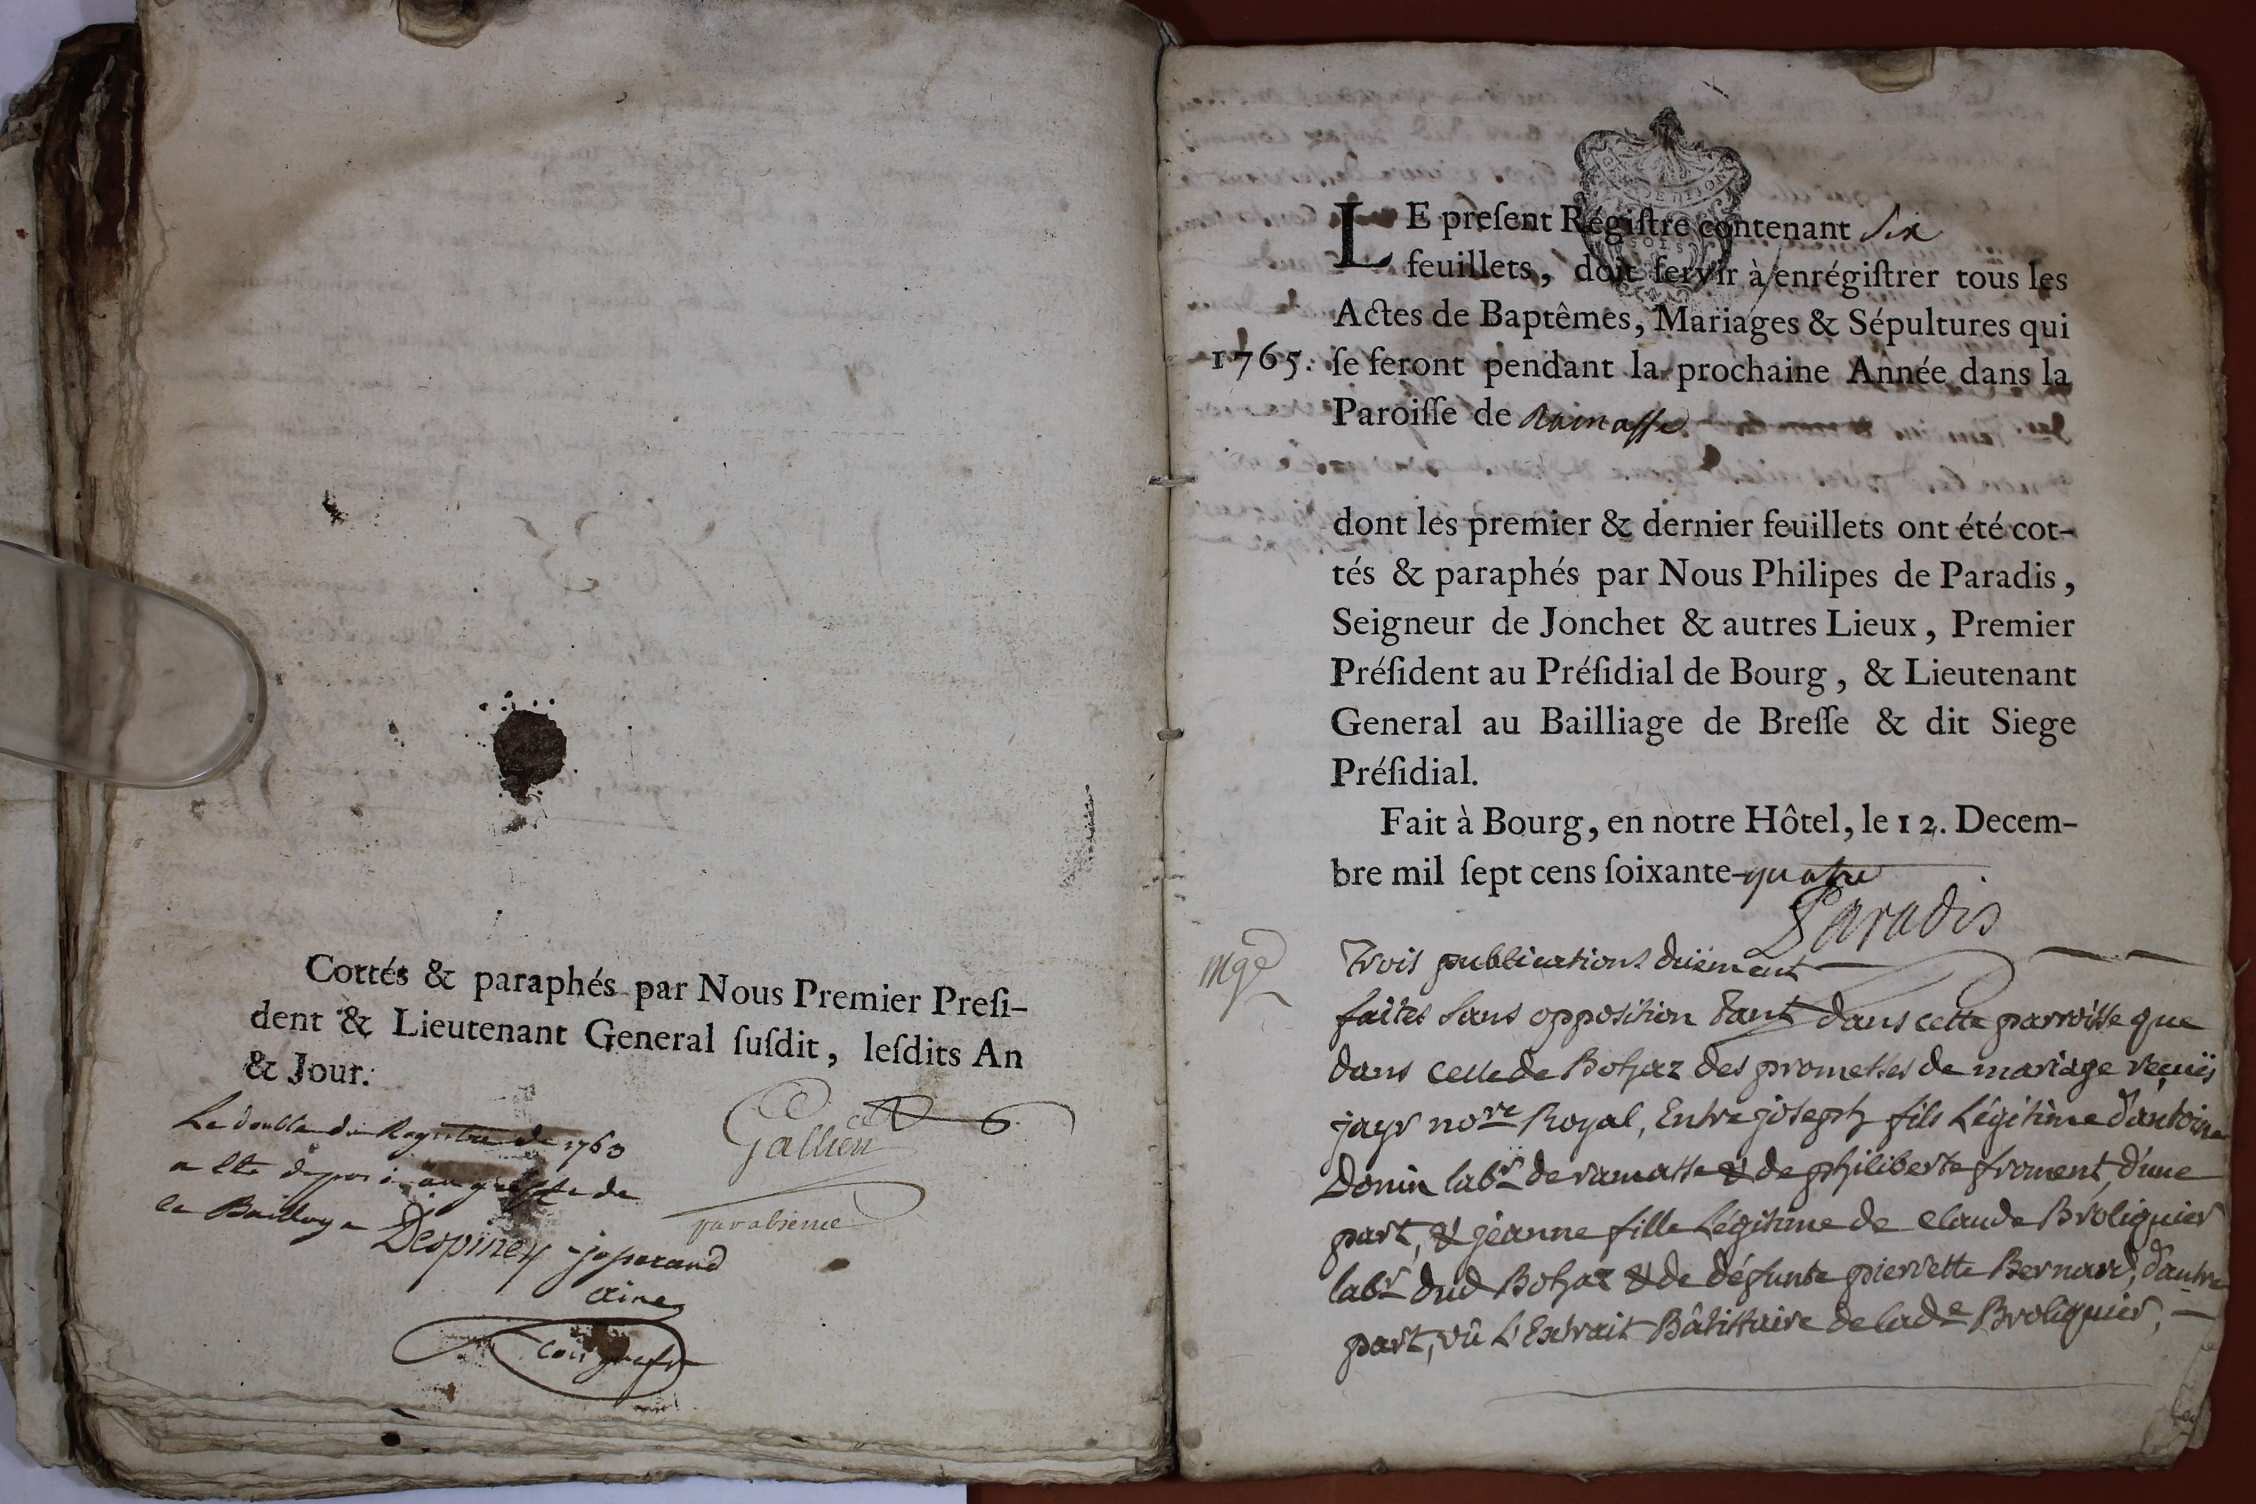 Cottés & paraphés par Nous Premier Presi-
dent & Lieutenant General susdit, lesdits An
& Jour.
Gallien
Le double du Registre de 1763
a Eté deposé au greffe de
le Bailliage Despiney josserand
ainé
par absence
1765.
LE present Régistre contenant six
feuillets, doit servir à enrégistrer tous les
Actes de Baptêmes, Mariages & Sépultures qui
se feront pendant la prochaine Année dans la
Paroisse de Ramasse
dont les premier & dernier feuillets ont été cot-
tés & paraphés par Nous Philipes de Paradis,
Seigneur de Jonchet & autres Lieux, Premier
Président au Présidial de Bourg, & Lieutenant
General au Bailliage de Bresse & dit Siege
Présidial.
Fait à Bourg, en notre Hôtel, le 12. Decem-
bre mil sept cens soixante-quatre
Paradis
mge
Trois publications düement
faites sans opposition tant dans cette parroisse que
dans celle de Bohaz des promesses de mariage reçuës
jayr nore Royal, Entre joseph fils Légitime d'antoine
Donin labr de ramasse & de philiberte froment, d'une
part, & jeanne fille Légitime de claude Broliquier
labr dud Bohaz & de défunte pierrette Bernard, d'autre
part, vû L'Extrait Bâtistaire de lade Broliquier,